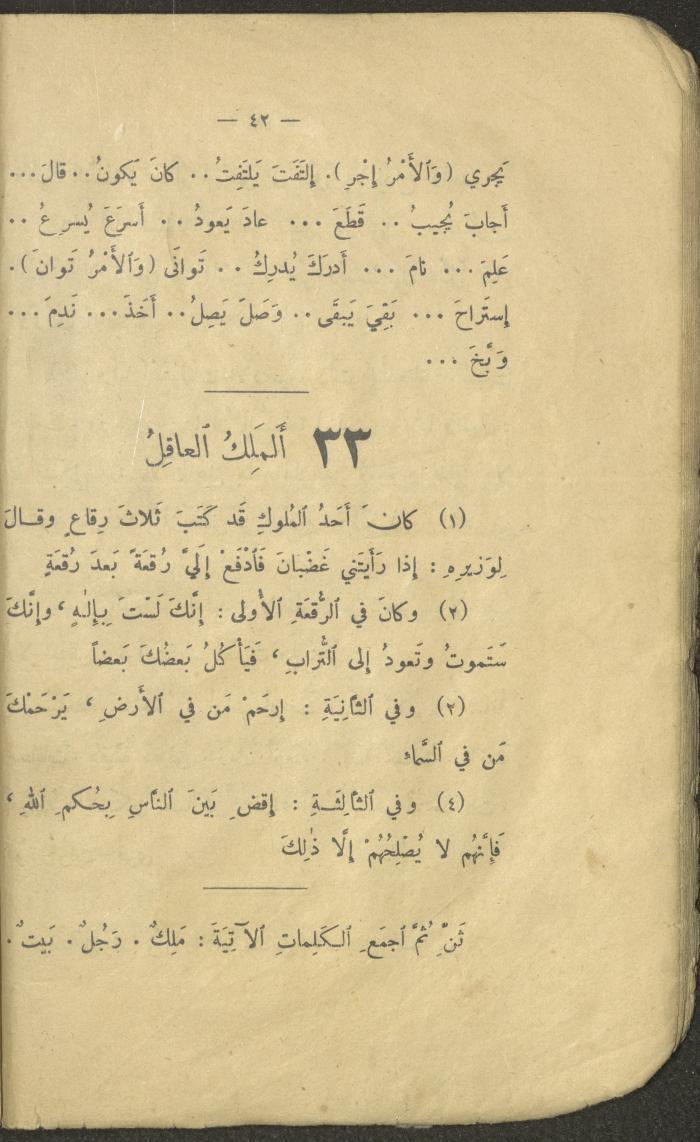 — ٤٢ —
يَجري (وَٱلأَمْرُ إِجْرِ). إِلتَفَتَ يَلتَفِتُ.. كانَ يَكونُ.. قالَ...
أَجابَ يُجيبُ .. قَطَعَ ... عادَ يَعودُ .. أَسرَعَ يُسرِعُ ..
عَلِمَ ... نامَ ... أَدرَكَ يُدرِكُ .. تَوانَى (وَٱلأَمْرُ تَوانَ).
إِستَراحَ ... بَقِيَ يَبقَى .. وَصَلَ يَصِلُ.. أَخذَ... نَدِمَ...
وَبَّخَ ...
٣٣ أَلمَلِكُ ٱلعاقِلُ
(١) كانَ أَحَدُ ٱلمُلوكِ قَد كَتَبَ ثَلاثَ رِقاعٍ وقـالَ
لِوَزيرِهِ : إِذا رَأَيتَني غَضْبانَ فَٱدْفَعْ إِلَيَّ رُقعَةً بَعدَ رُقعَةٍ
(٢) وكانَ في ٱلرُّقعَةِ ٱلأُولى : إِنَّكَ لَسْتَ بِإِلٰهٍ ، وإِنَّكَ
سَتَموتُ وتَعودُ إِلى ٱلتُّرابِ ، فَيَأْكُلُ بَعضُكَ بَعضاً
(٢) وفي ٱلثَّانِيَةِ : إِرحَمْ مَن في ٱلأَرضِ ، يَرْحَمْكَ
مَن في ٱلسَّماءِ
(٤) وفي ٱلثَّالِثَـةِ : إِقضِ بَينَ ٱلنَّاسِ بِحُكمِ ٱللهِ ،
فَإِنَّهُم لا يُصْلِحُهُمْ إِلَّا ذٰلِكَ
ثَنِّ ثُمَّ ٱجمَعِ ٱلـكَلِماتِ ٱلآتِيَةَ : مَلِكٌ . رَجُلٌ . بَيتٌ .